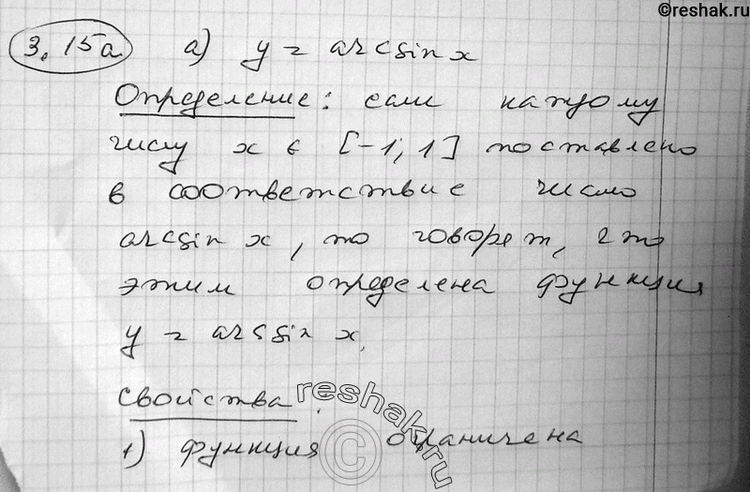 ©reshak.ru
3.15а а) y = arcsin x
Определение: если каждому
числу x ∈ [-1; 1] поставлено
в соответствие число
arcsin x, то говорят, что
этим определена функция
y = arcsin x.
Свойства:
1) функция ограничена
reshak.ru
©